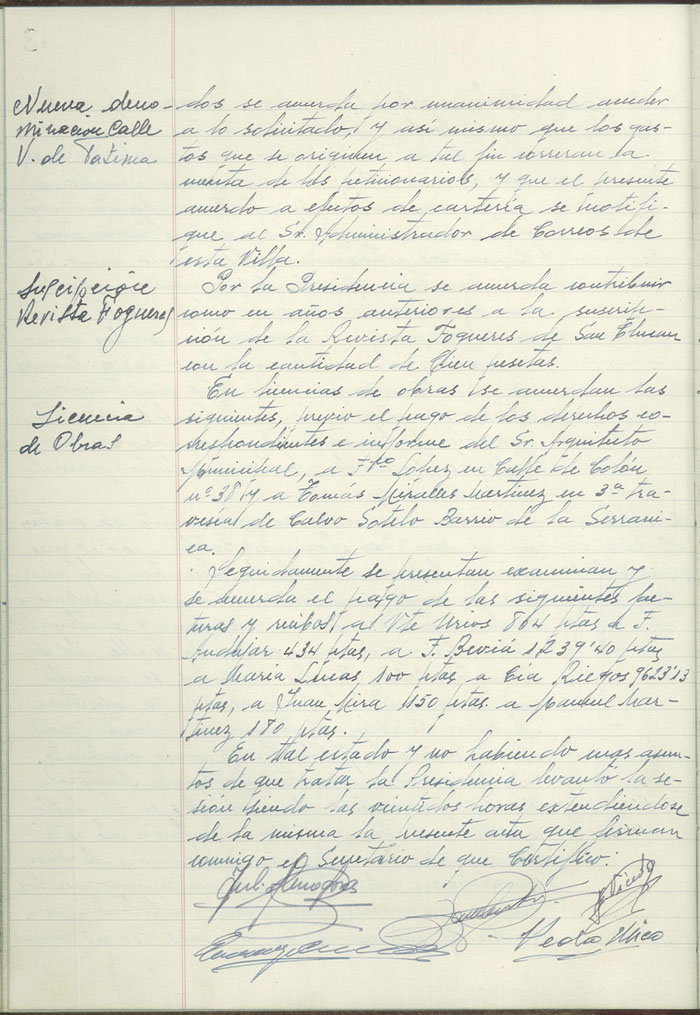 Nueva deno-
minación Calle
V. de Fatima
dos se acuerda por unanimidad acceder
a lo solicitado, y así mismo que los gas-
tos que se originen a tal fin correran la
cuenta de los peticionarios, y que el presente
acuerdo a efectos de cartería se notifi-
que al Sr. Administrador de Correos de
esta Villa.
Suscripción
Revista Fogueres
Por la Presidencia se acuerda contribuir
como en años anteriores a la suscrip-
ción de la Revista Fogueres de San Chuan
con la cantidad de Cien pesetas.
Licencia
de Obras
En licencias de obras se acuerdan las
siguientes, previo el pago de los derechos co-
rrespondientes e informe del Sr. Arquitecto
Municipal, a Fco Lopez en Calle de Colón
nº 38 y a Tomás Miralles Martinez en 3ª tra-
vesía de Calvo Sotelo Barrio de la Serrani-
ca.
Seguidamente se presentan examinan y
se acuerda el pago de las siguientes fac-
turas y recibos, a Vte Urios 864 ptas a F.
Andujar 434 ptas, a F. Beviá 1239'40 ptas,
a María Lucas 100 ptas a Cía Riegos 9623'13
ptas, a Juan Mira 1150 ptas. a Manuel Mar-
tinez 180 ptas.
En tal estado y no habiendo mas asun-
tos de que tratar la Presidencia levantó la se-
sión siendo las veintidos horas extendiendose
de la misma la presente acta que firman
conmigo el Secretario de que Certifico.